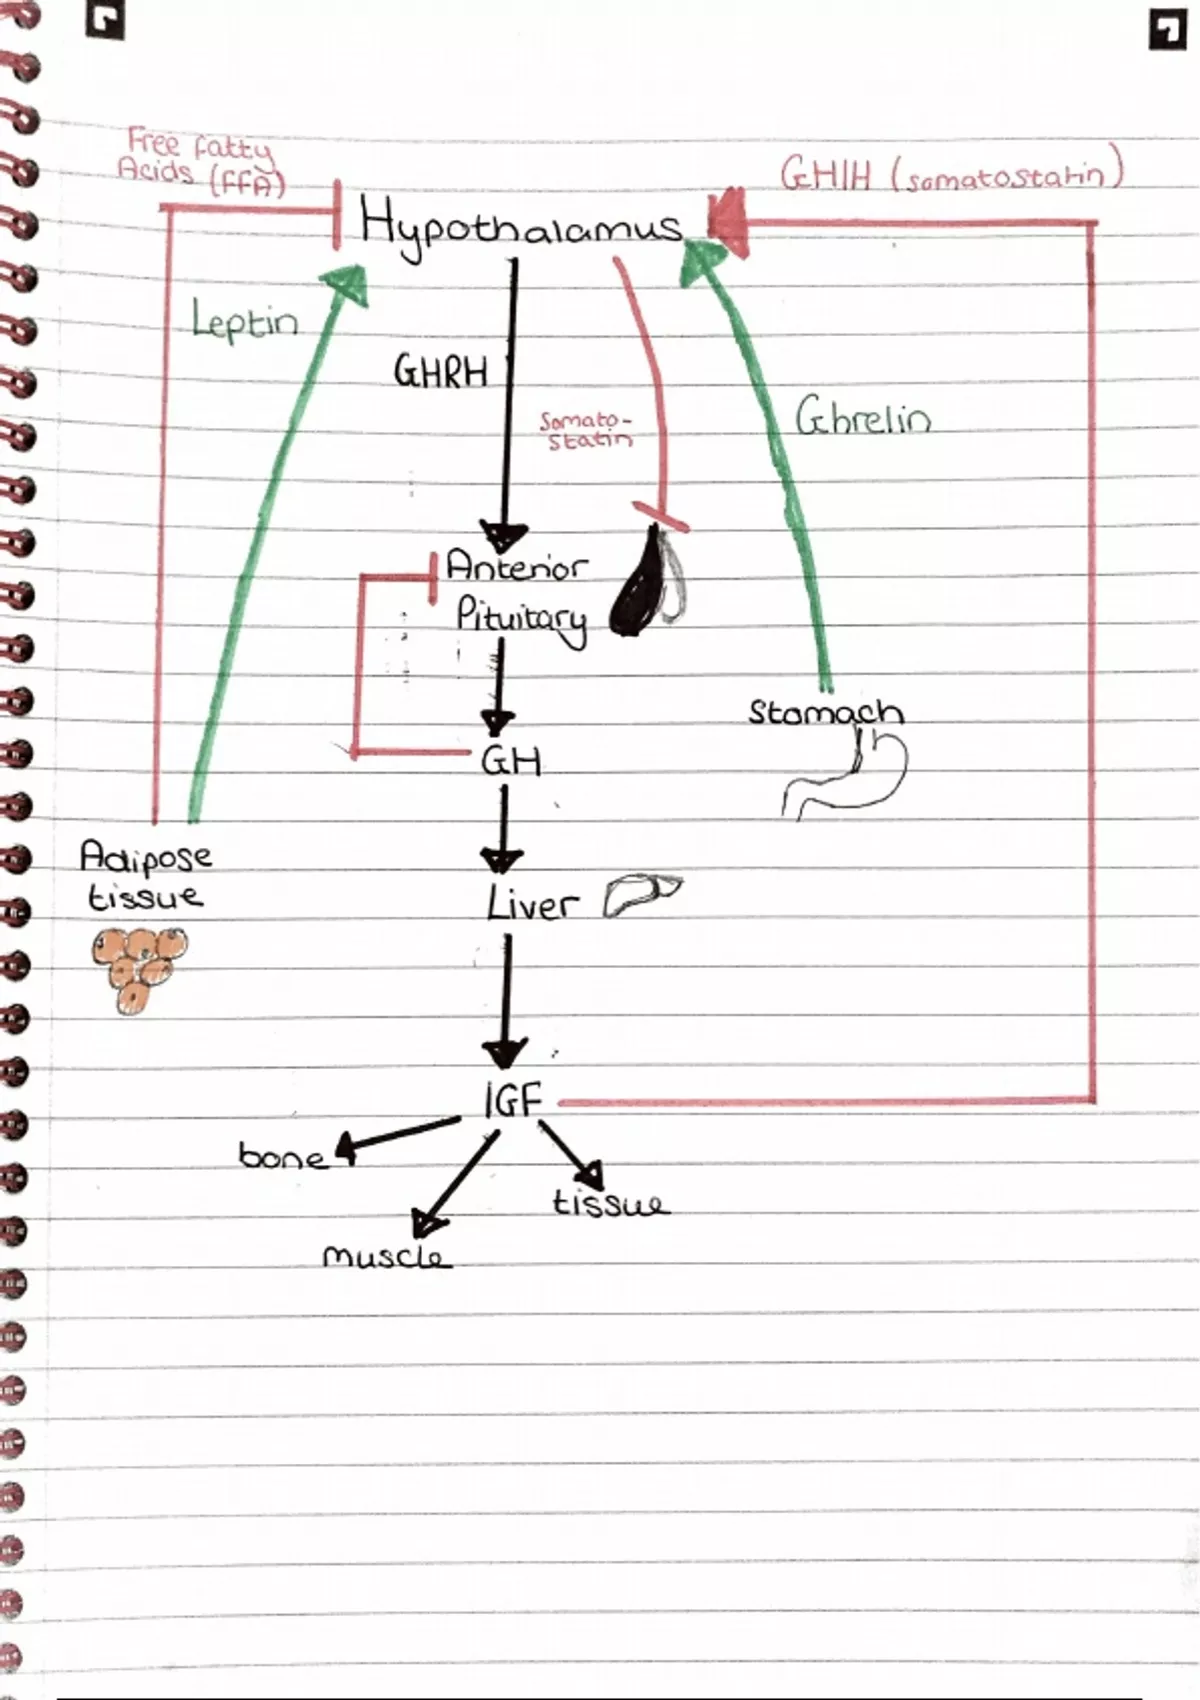 Free fatty
Acids (FFA)
GHIH (somatostatin)
Hypothalamus
Leptin
GHRH
Somato-
statin
Ghrelin
Anterior
Pituitary
Stomach
GH
Adipose
tissue
Liver
IGF
bone
tissue
muscle